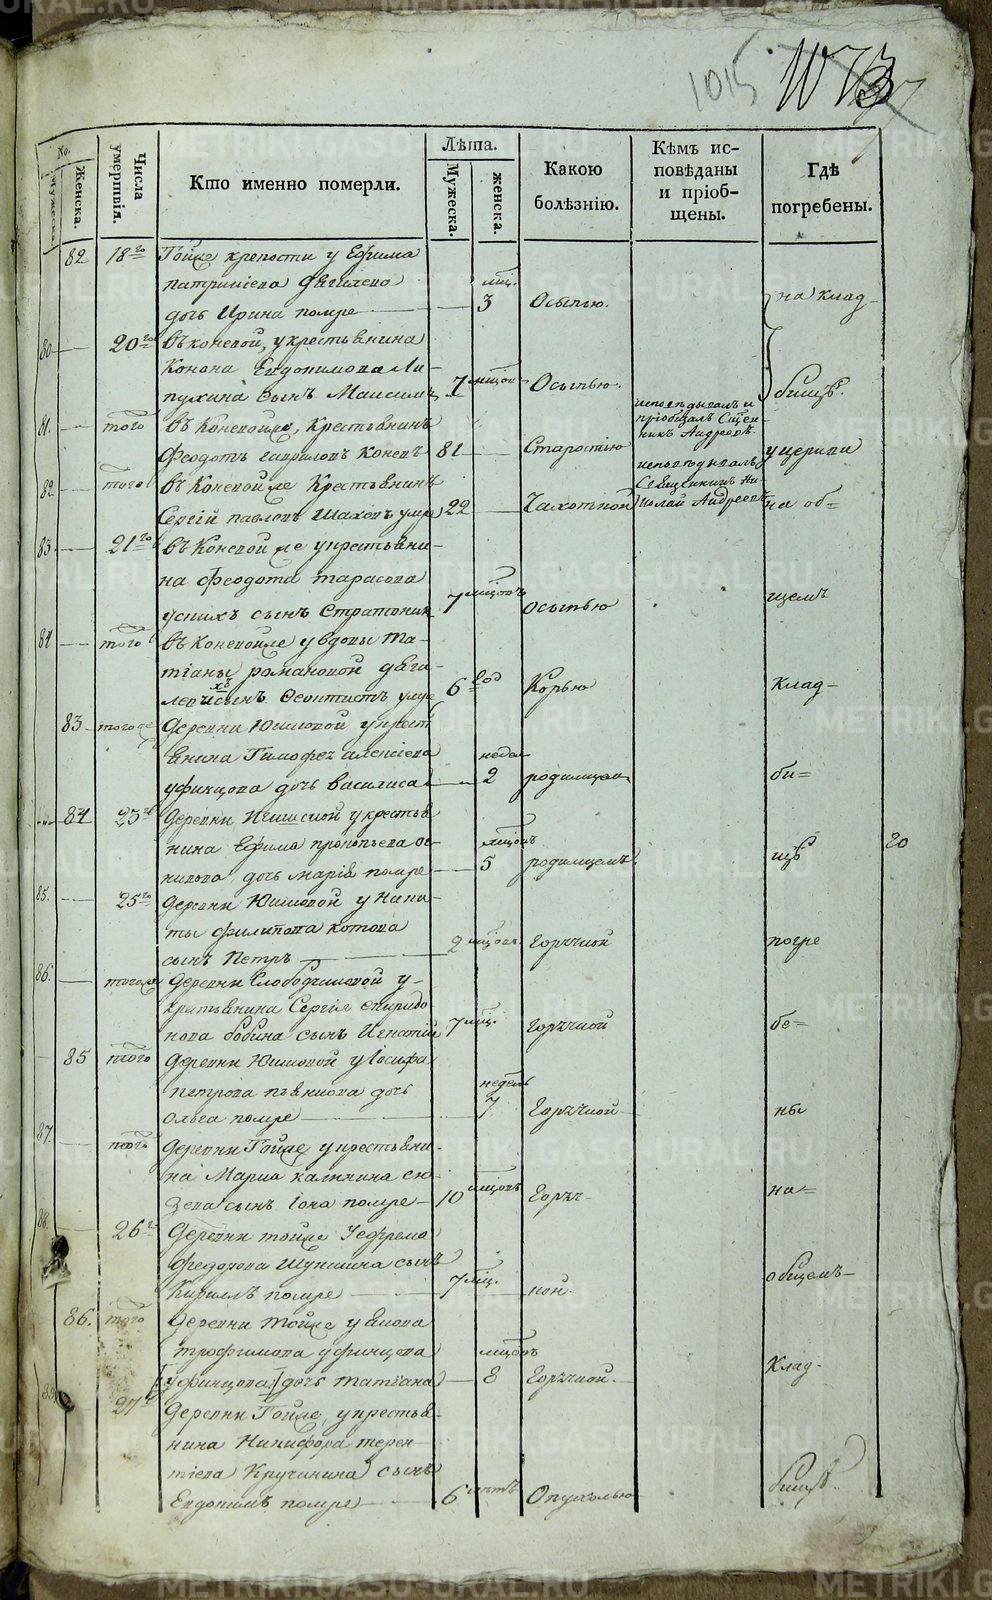 1015
1073
No.
Мужеска.
Женска.
Числа умертвія.
Кто именно померли.
Лѣта.
Мужеска.
женска.
Какою болѣзнію.
Кѣмъ исповѣданы и пріобщены.
Гдѣ погребены.
82 18го Тойже крепости у Ефима
патрикіева
дочь Ирина помре 3 мѣц. Осьпою. на клад-
80 20го въ коневой, у крестьянина
Конона Евдокимова Ли-
пухина сынъ Максимъ 7 мѣцовъ Осьпью. бищѣ.
исповѣдывалъ и
пріобщалъ Сщен-
никъ Андреевъ
81. того въ Коневойже, Крестьянинъ
Феодотъ гавриловъ Коневъ 81 Старостію у церкви
исповѣдывалъ
Священникъ Ни-
колай Андреевъ
82 того въ Коневой же Крестьянинъ
Сергій павловъ Шаховъ умре 22 Чахоткой на об=
83. 21го въ Коневой же у крестьяни-
на феодота тарасова
сынъ Стратоник 7 мѣцовъ осьпью щемъ
84 того въ Коневойже у вдовы Та-
тіаны романовой
сынъ Феоктистъ умре 6 год Корью клад-
83 тогоже Деревни Юшковой у крест
янина Тимофея алексіева
уфинцова дочь василиса 2 недел родимцем би=
84 23го Деревни у крестья
нина Ефима прокопьева
дочь марія помре 5 мѣцовъ родимцемъ щѣ
20
85. 25го Деревни Юшковой у Ники-
ты филипова котова
сынъ Петръ 2 мѣцовъ горячкой погре
86. тогоже Деревни Слободчиковой у
кретьянина Сергія спиридо
нова бабина сынъ Игнатій 7 мѣц. горячкой бе=
85 того Деревни Юшковой у Іосифа
петрова дочь
Ольга помре 7 недель Горячкой ны
87. того Деревни Тойже у крестьяни-
на Марка калинина
сынъ Іона помре 10 мѣцовъ Горяч- на=
88. 26го Деревни тойже У ефрема
федорова сынъ
Кирилъ помре 7 мѣц. кой. общемъ-
86. того Деревни тойже у якова
трофимова уфинцова
[уфинцова] дочь татіана 8 мѣцовъ Горячкой. Клад-
89. 27го Деревни Тойже, у крестья-
нина Никифора терен-
тіева Кручинина сынъ
Евдокимъ помре 6 летъ Опухолью бищѣ
METRIKI.GASO-URAL.RU